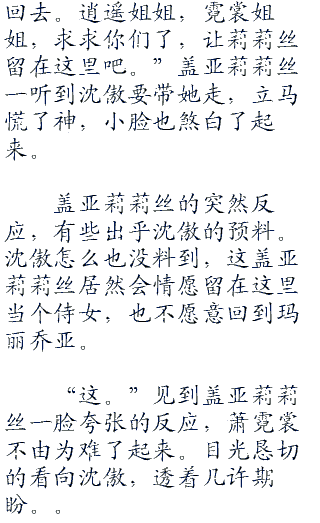 回去。逍遥姐姐，霓裳姐
姐，求求你们了，让莉莉丝
留在这里吧。”盖亚莉莉丝
一听到沈傲要带她走，立马
慌了神，小脸也煞白了起
来。
盖亚莉莉丝的突然反
应，有些出乎沈傲的预料。
沈傲怎么也没料到，这盖亚
莉莉丝居然会情愿留在这里
当个侍女，也不愿意回到玛
丽乔亚。
“这。”见到盖亚莉莉
丝一脸夸张的反应，萧霓裳
不由为难了起来。目光恳切
的看向沈傲，透着几许期
盼。。